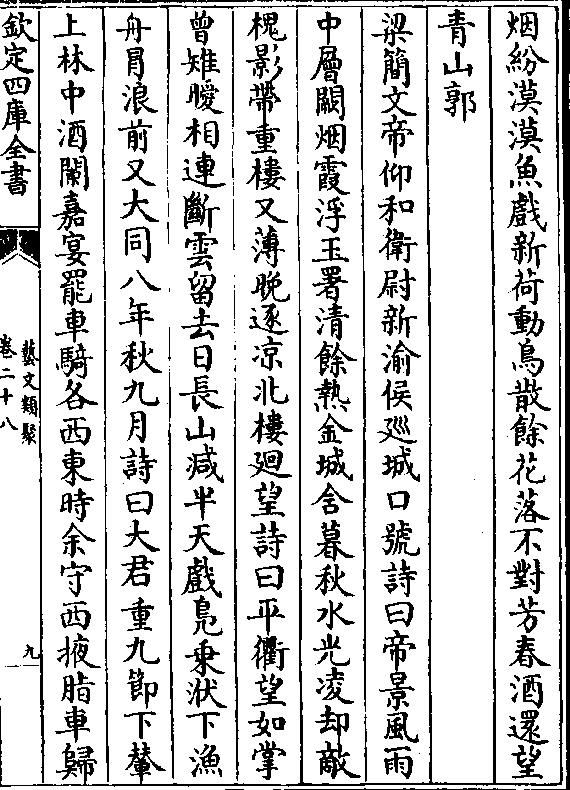 烟紛漠漠魚戲新荷動鳥散餘花落不對芳春酒還望
青山郭
梁簡文帝仰和衛尉新渝侯廵城口號詩曰帝景風雨
中層闕烟霞浮玉署清餘熱金城含暮秋水光凌却敵
槐影帶重樓又薄晚逐凉北樓廻望詩曰平衢望如掌
曾雉曖相連斷雲留去日長山減半天戲鳬乗洑下漁
舟冐浪前又大同八年秋九月詩曰大君重九節下輦
上林中酒闌嘉宴罷車騎各西東時余守西掖脂車歸
欽定四庫全書
藝文類聚
卷二十八
九